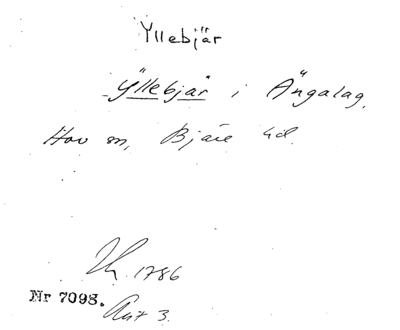 Yllebjär
Yllebjär i Ängalag,
Hov sn, Bjäre hd.
1786
Nr 7098.
Ant 3.